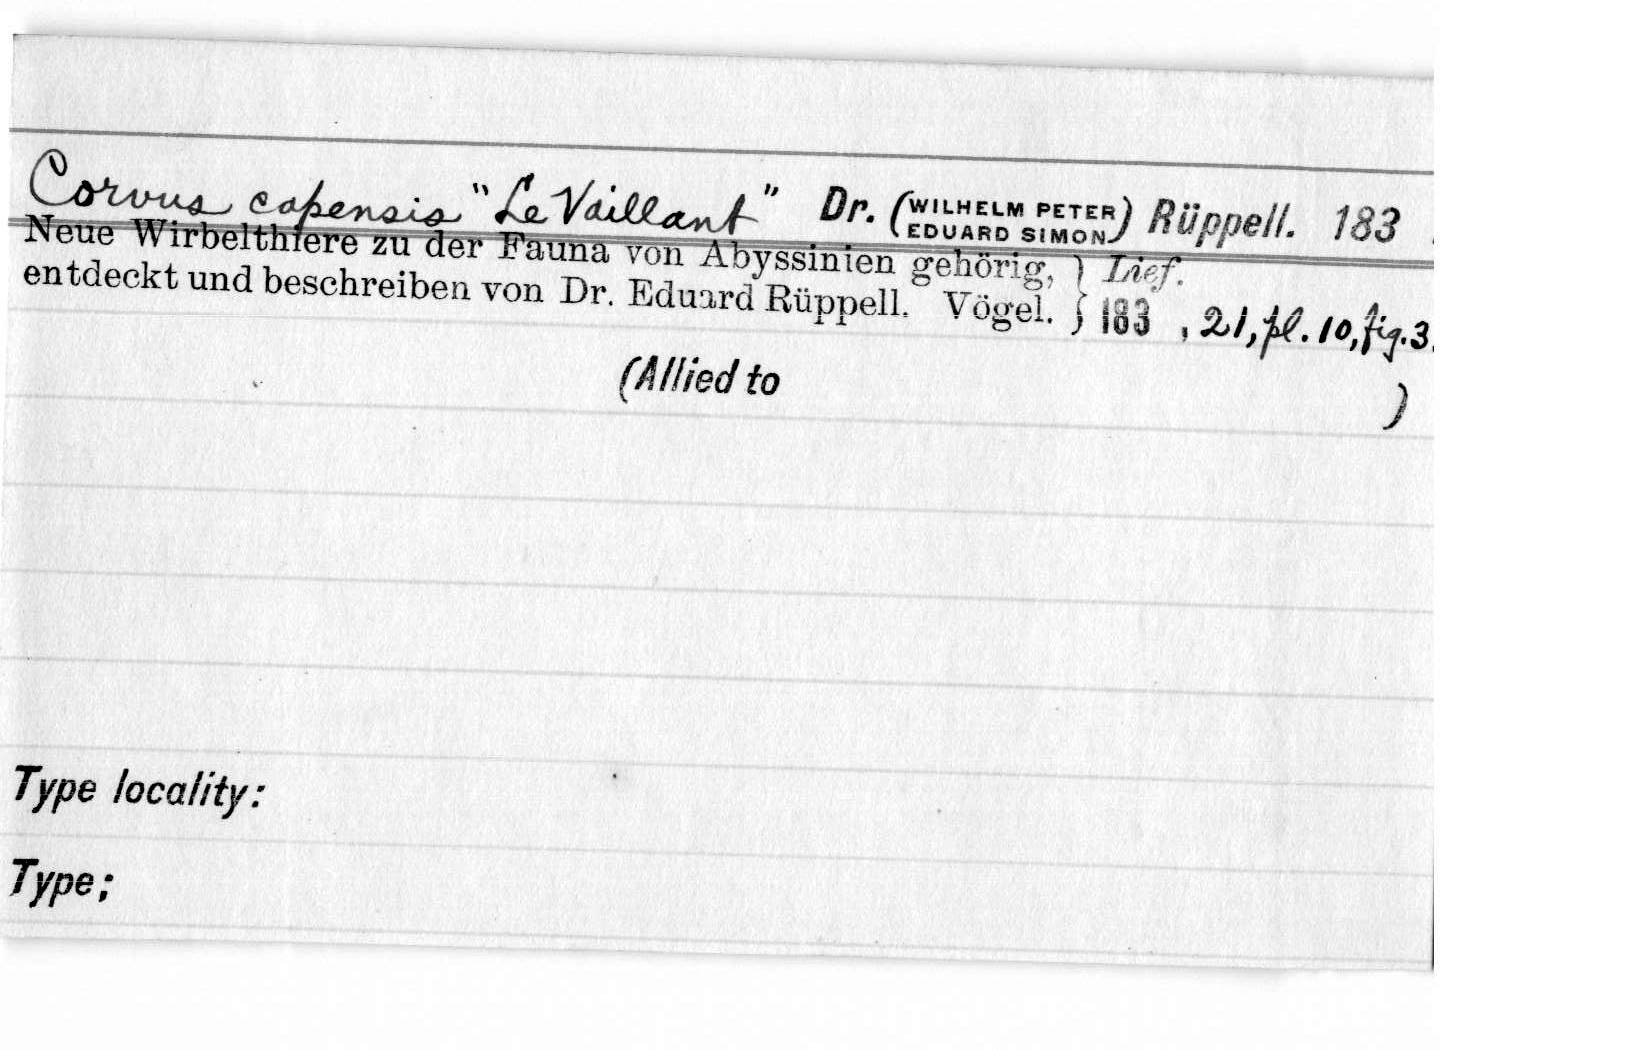 Corvus capensis "Le Vaillant" Dr. (WILHELM PETER EDUARD SIMON) Rüppell. 183 .
Neue Wirbelthiere zu der Fauna von Abyssinien gehörig, } Lief.
entdeckt und beschreiben von Dr. Eduard Rüppell. Vögel. } 183 , 21, pl. 10, fig. 3.
(Allied to )
Type locality:
Type;